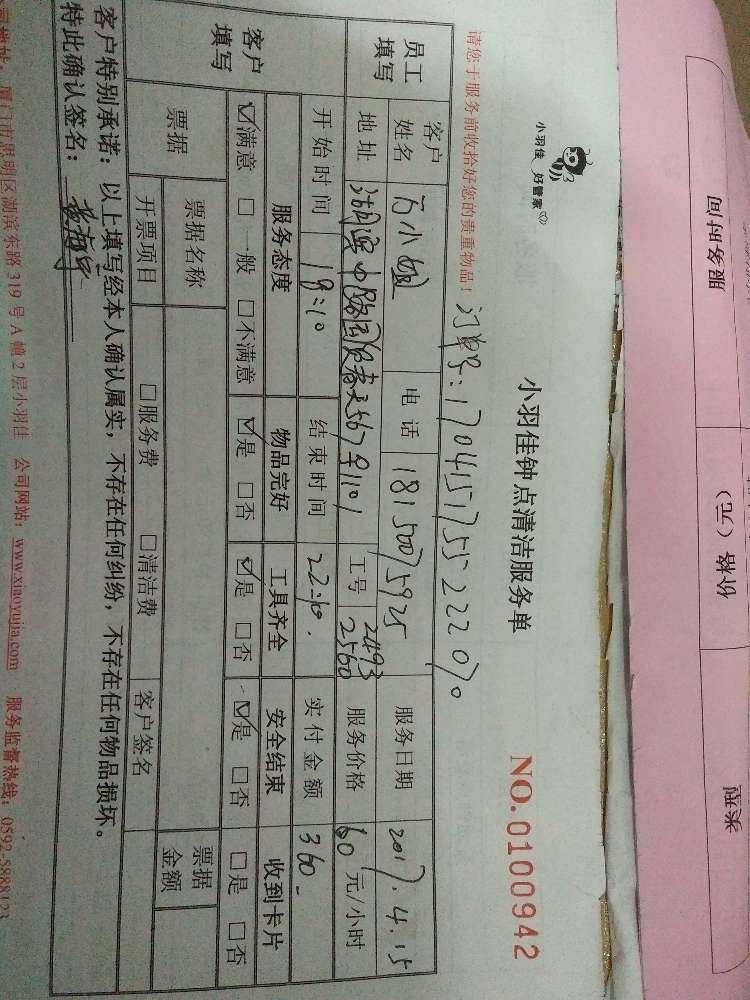 小羽佳 好管家
小羽佳钟点清洁服务单
NO.0100942
请您于服务前收拾好您的贵重物品!
订单号:
员工填写
客户姓名 方小姐 电话 18150075925 服务日期 2017.4.15
地址 工号 2493 2560 服务价格 60 元/小时
开始时间 19:10 结束时间 22:10. 实付金额 360-
客户填写
服务态度 物品完好 工具齐全 安全结束 收到卡片
☑满意 □一般 □不满意 ☑是 □否 ☑是 □否 ☑是 □否 □是 □否
票据 票据名称 票据金额
开票项目 □服务费 □清洁费 客户签名
客户特别承诺:以上填写经本人确认属实,不存在任何纠纷,不存在任何物品损坏。
特此确认签名:
厦门市思明区湖滨东路319号A幢2层小羽佳 公司网站:www.xiaoyujia.com 服务监督热线:0592-5888123
服务时间
价格(元)
类型